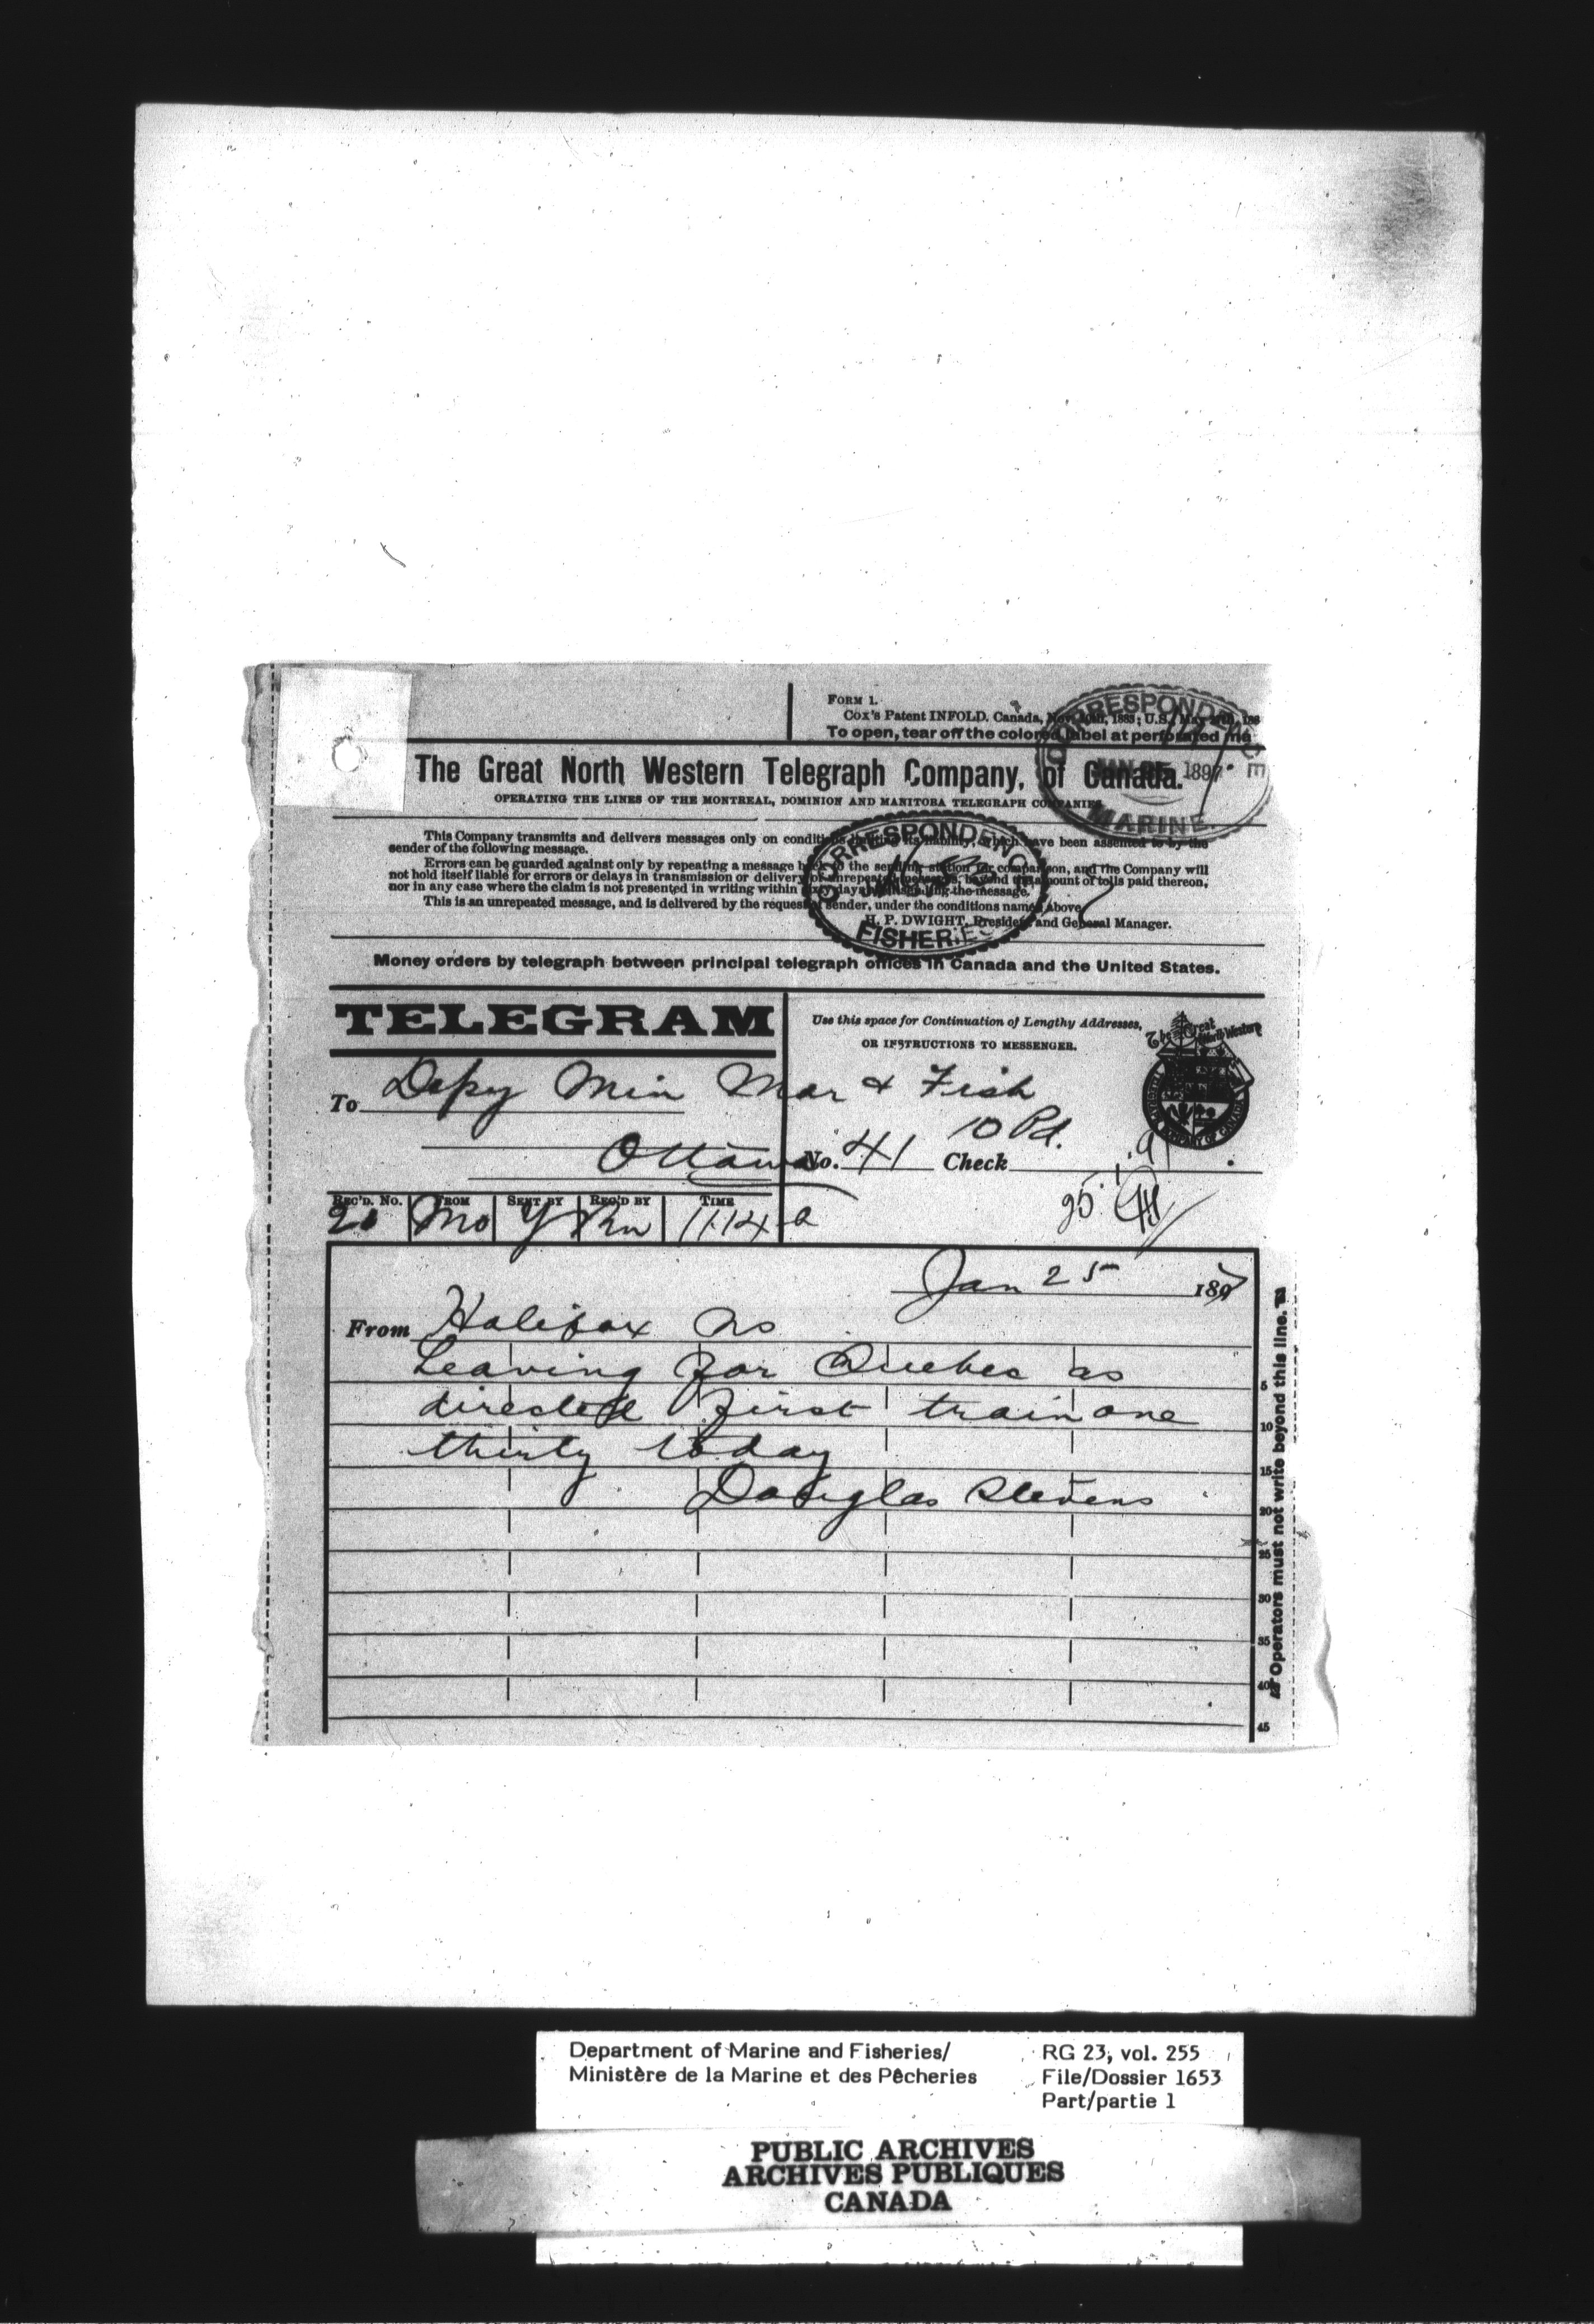 FORM 1.
Cox's Patent INFOLD. Canada, Nov. 1883; U.S., May 188
To open, tear off the colored label at perforated line
CORRESPONDENCE
1897
MARINE
The Great North Western Telegraph Company, of Canada.
OPERATING THE LINES OF THE MONTREAL, DOMINION AND MANITOBA TELEGRAPH COMPANIES.
This Company transmits and delivers messages only on conditions limiting its liability, which have been assented to by the
sender of the following message.
Errors can be guarded against only by repeating a message back to the sending station for comparison, and the Company will
not hold itself liable for errors or delays in transmission or delivery of unrepeated messages, beyond the amount of tolls paid thereon,
nor in any case where the claim is not presented in writing within sixty days after sending the message.
This is an unrepeated message, and is delivered by the request of sender, under the conditions named above.
H. P. DWIGHT, President and General Manager.
CORRESPONDENCE
FISHERIES
Money orders by telegraph between principal telegraph offices in Canada and the United States.
TELEGRAM
Use this space for Continuation of Lengthy Addresses,
OR INSTRUCTIONS TO MESSENGER.
The Great North Western
To Depy Min Mar & Fish
Ottawa
No. 41 Check 10 Pd.
REC'D. No. FROM SENT BY REC'D BY TIME
Mo 11.14 a
25
Jan 25 1897
From Halifax Ns
Leaving for Quebec as
directed first train one
thirty today
Douglas Stevens
5
10
15
20
25
30
35
40
45
Operators must not write beyond this line.
Department of Marine and Fisheries/
Ministère de la Marine et des Pêcheries
RG 23, vol. 255
File/Dossier 1653
Part/partie 1
PUBLIC ARCHIVES
ARCHIVES PUBLIQUES
CANADA